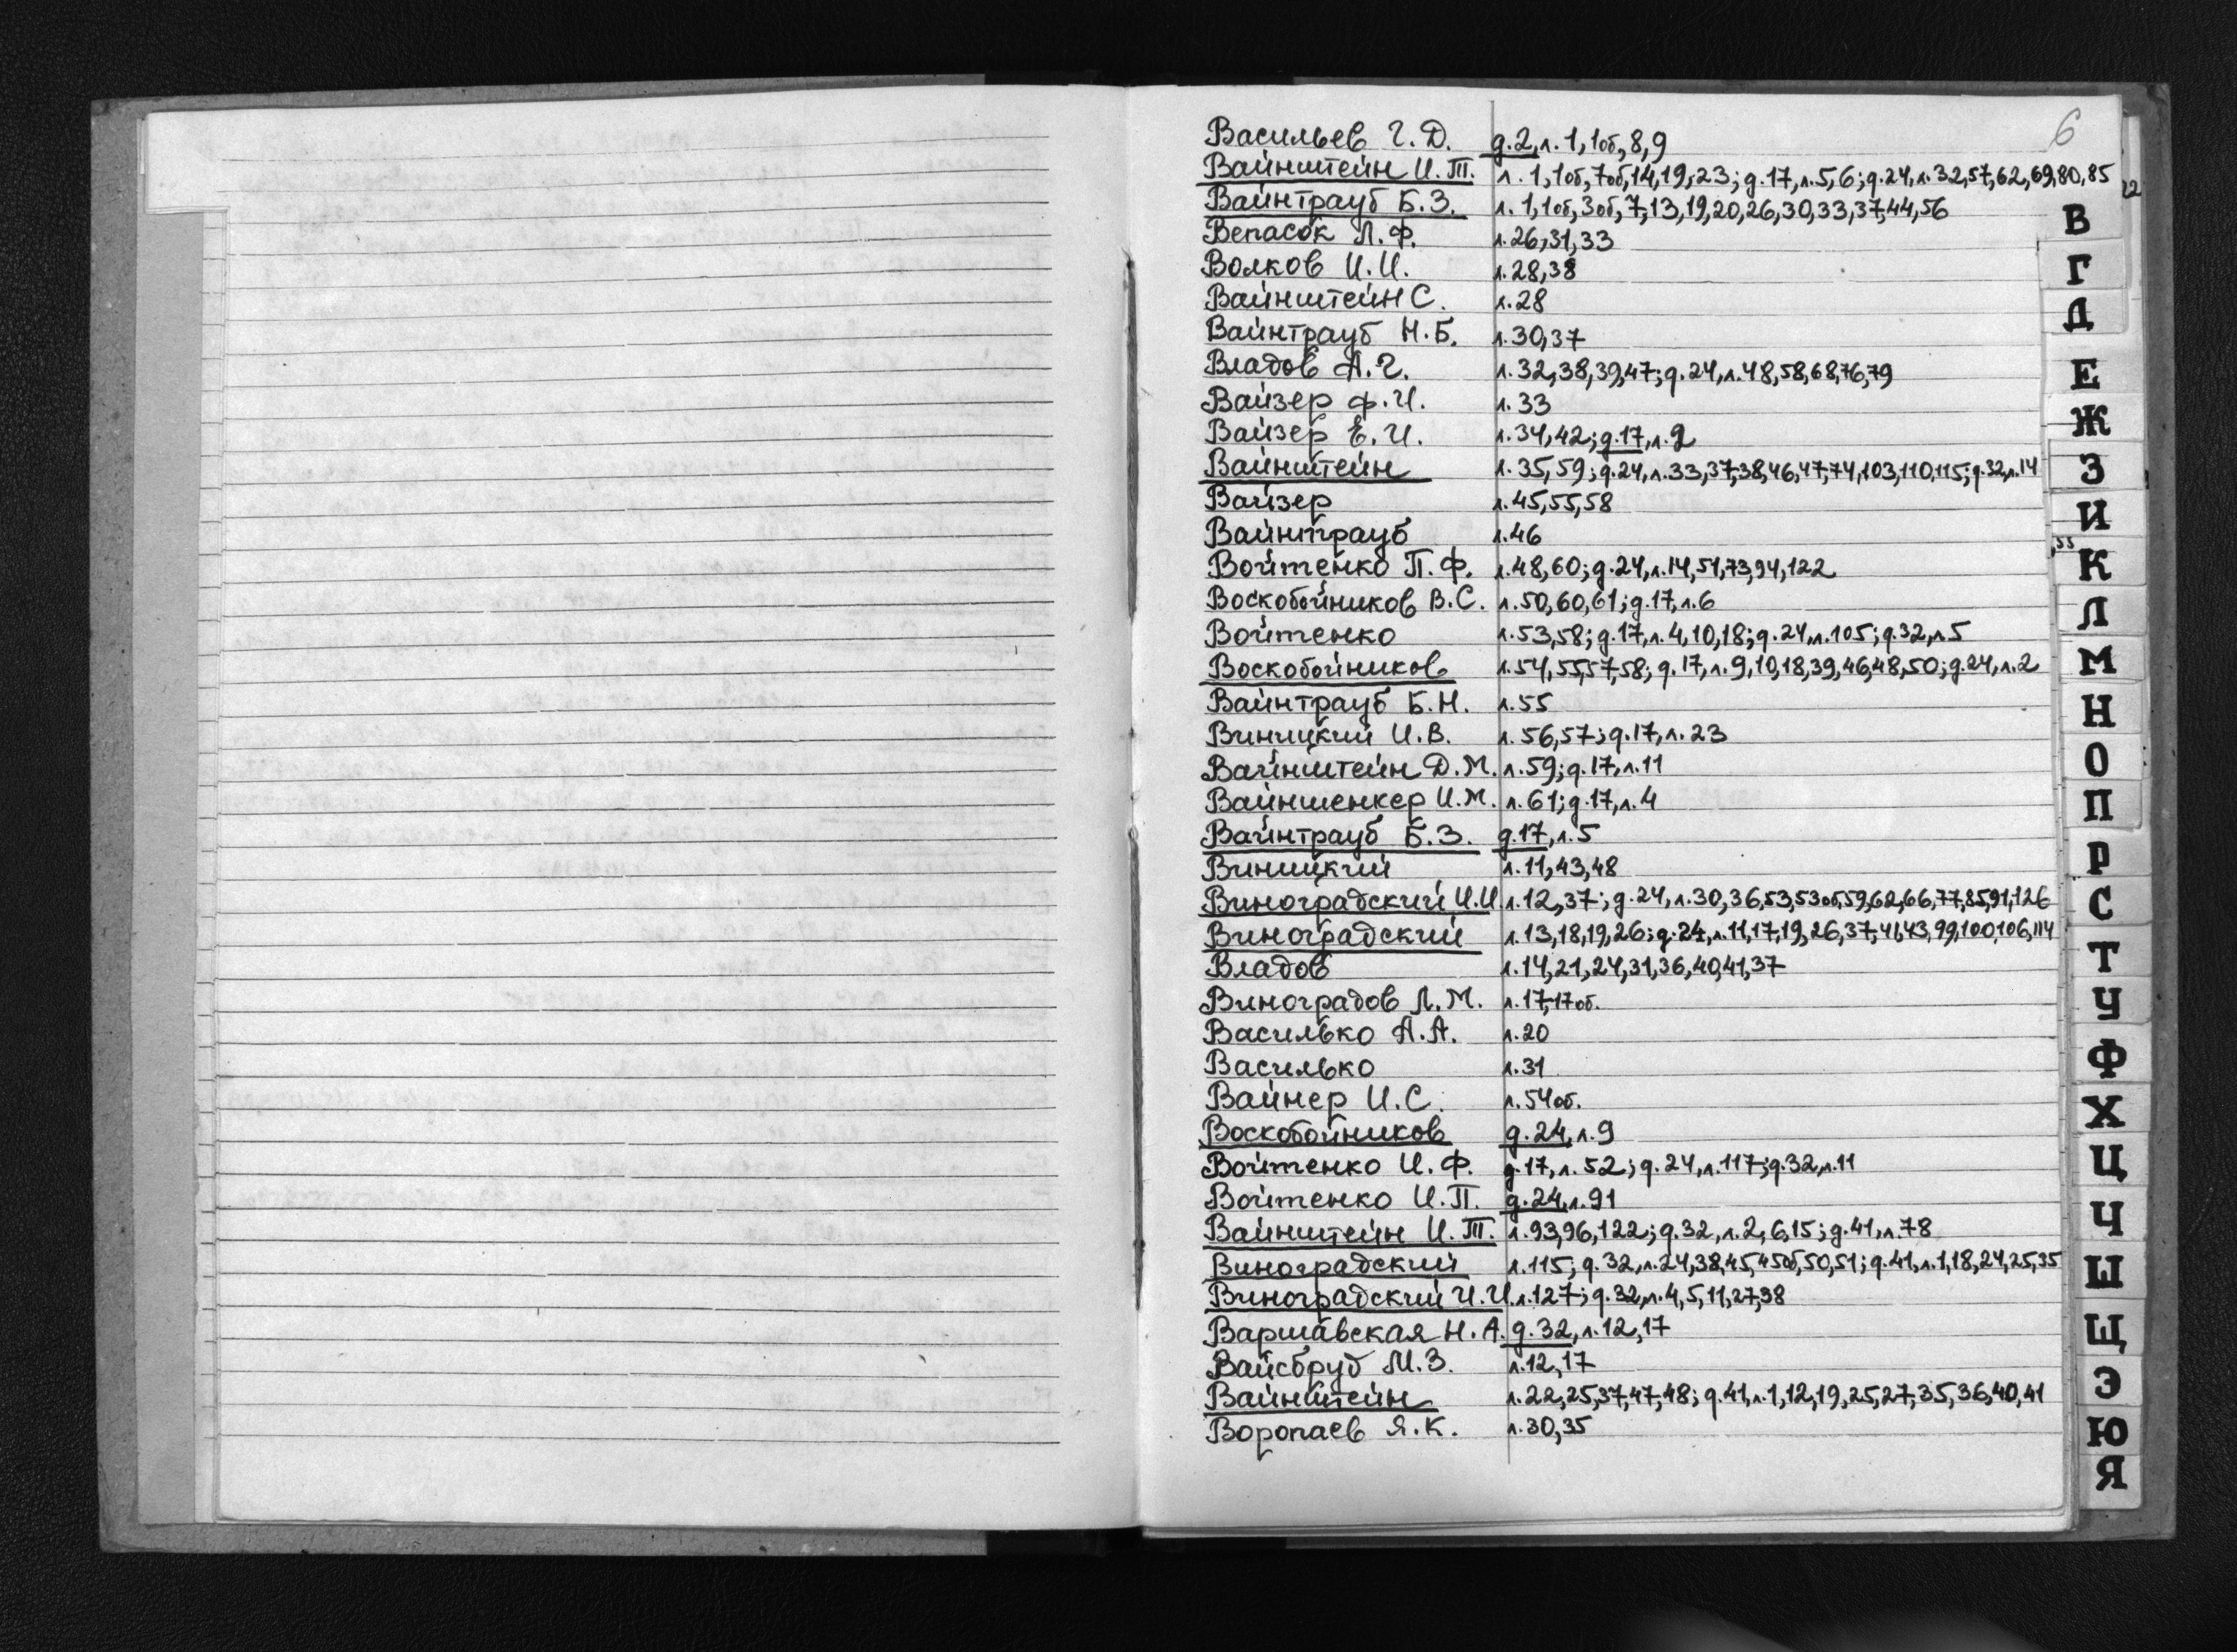 6
Васильев Г. Д. д.2, л. 1, 1об, 8, 9
Вайнштейн И. Т. л. 1, 1об, 7об, 14, 19, 23; д. 17, л. 5, 6; д. 24, л. 32, 57, 62, 69, 80, 85
Вайнтрауб Б. З. л. 1, 1об, 3об, 7, 13, 19, 20, 26, 30, 33, 37, 44, 56
Вепасок Л. Ф. л. 26, 31, 33
Волков И. И. л. 28, 38
Вайнштейн С. л. 28
Вайнтрауб Н. Б. л. 30, 37
Владов А. Г. л. 32, 38, 39, 47; д. 24, л. 48, 58, 68, 76, 79
Вайзер Ф. И. л. 33
Вайзер Е. И. л. 34, 42; д. 17, л. 2
Вайнштейн л. 35, 59; д. 24, л. 33, 37, 38, 46, 47, 74, 103, 110, 115; д. 32, л. 14
Вайзер л. 45, 55, 58
Вайнтрауб л. 46
Войтенко П. Ф. л. 48, 60; д. 24, л. 14, 51, 73, 94, 122
Воскобойников В. С. л. 50, 60, 61; д. 17, л. 6
Войтенко л. 53, 58; д. 17, л. 4, 10, 18; д. 24, л. 105; д. 32, л. 5
Воскобойников л. 54, 55, 57, 58; д. 17, л. 9, 10, 18, 39, 46, 48, 50; д. 24, л. 2
Вайнтрауб Б. Н. л. 55
Виницкий И. В. л. 56, 57; д. 17, л. 23
Вайнштейн Д. М. л. 59; д. 17, л. 11
Вайншенкер И. М. л. 61; д. 17, л. 4
Вайнтрауб Б. З. д. 17, л. 5
Виницкий л. 11, 43, 48
Виноградский И. И. л. 12, 37; д. 24, л. 30, 36, 53, 53об, 59, 62, 66, 77, 85, 91, 126
Виноградский л. 13, 18, 19, 26; д. 24, л. 11, 17, 19, 26, 37, 41, 43, 99, 100, 106, 114
Владов л. 14, 21, 24, 31, 36, 40, 41, 37
Виноградов Л. М. л. 17, 17об.
Василько А. А. л. 20
Василько л. 31
Вайнер И. С. л. 54об.
Воскобойников д. 24, л. 9
Войтенко И. Ф. д. 17, л. 52; д. 24, л. 117; д. 32, л. 11
Войтенко И. П. д. 24, л. 91
Вайнштейн И. Т. л. 93, 96, 122; д. 32, л. 2, 6, 15; д. 41, л. 78
Виноградский л. 115; д. 32, л. 24, 38, 45, 45об, 50, 51; д. 41, л. 1, 18, 24, 25, 35
Виноградский И. И. л. 127; д. 32, л. 4, 5, 11, 27, 38
Варшавская Н. А. д. 32, л. 12, 17
Вайсбруд М. З. л. 12, 17
Вайнштейн л. 22, 25, 37, 47, 48; д. 41, л. 1, 12, 19, 25, 27, 35, 36, 40, 41
Воропаев Я. К. л. 30, 35
В
Г
Д
Е
Ж
З
И
К
Л
М
Н
О
П
Р
С
Т
У
Ф
Х
Ц
Ч
Ш
Щ
Э
Ю
Я